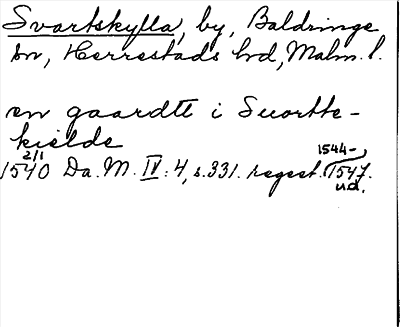 Svartskylla, by, Baldringe
sn, Herrestads hd, Malm. l.
en gaardtt i Suortte-
kielde
2/1 1544-
1540 Da. M. IV: 4, s. 331. regest. 1547.
u.d.